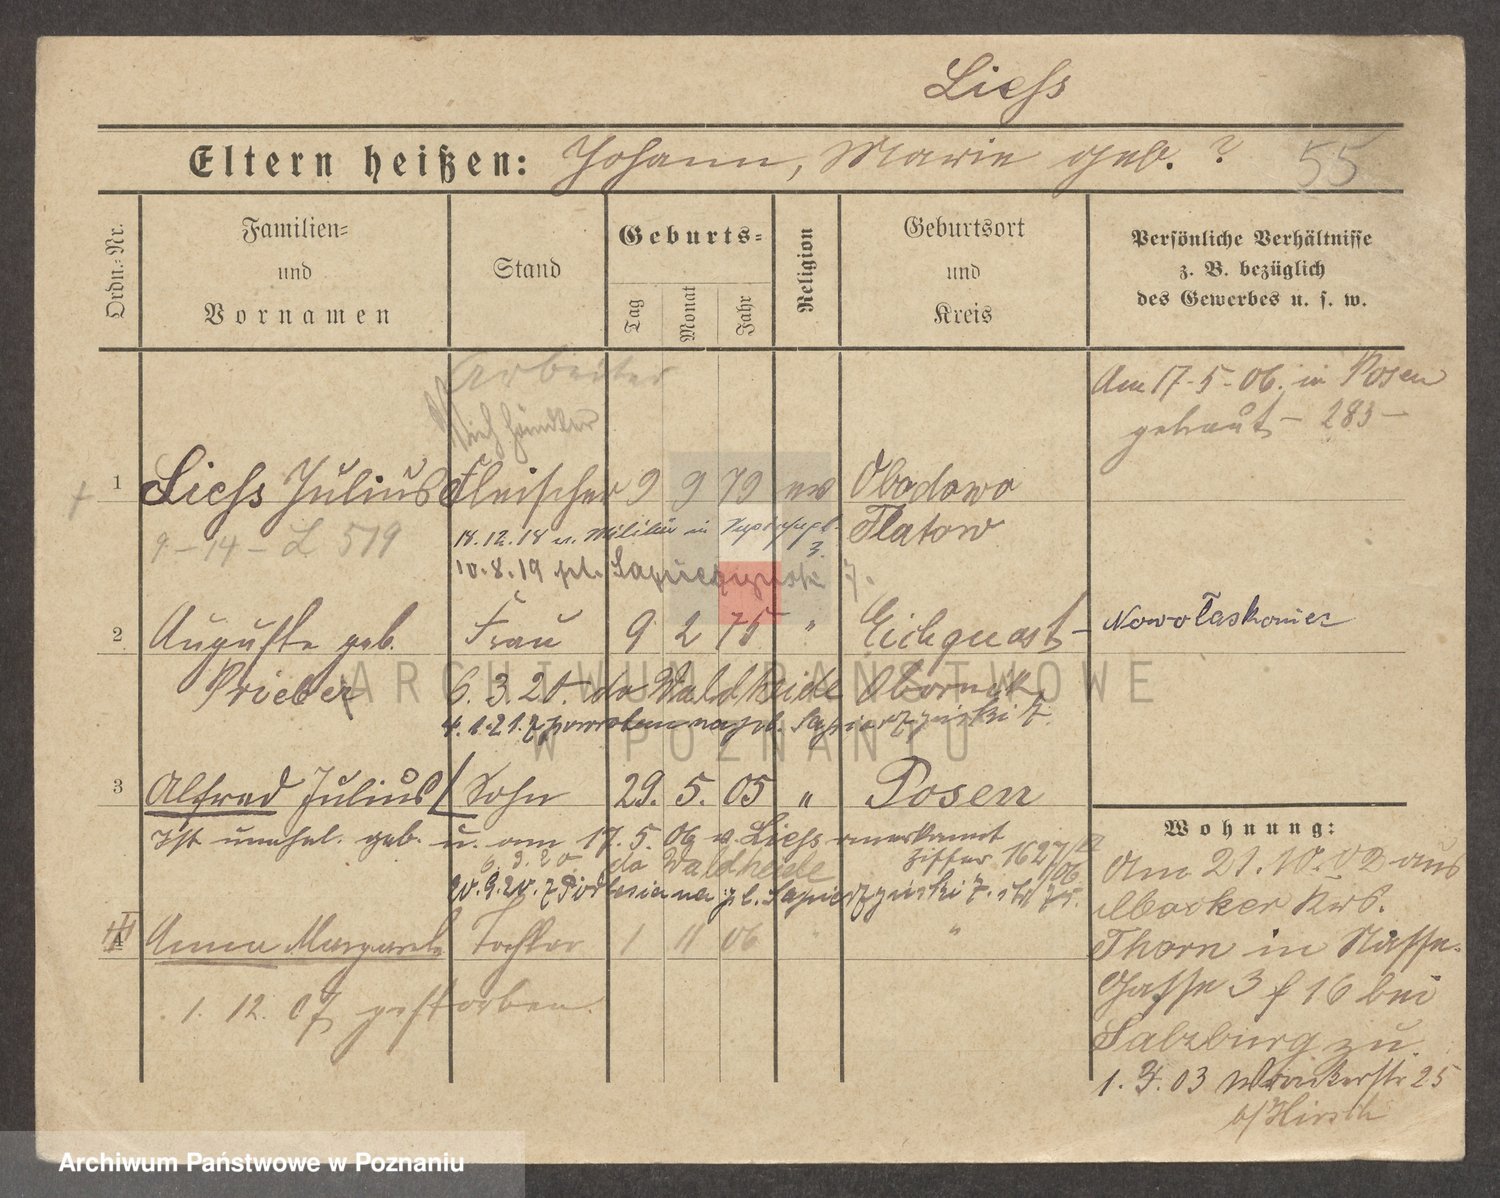 Liess
Eltern heißen: Johann, Marie geb. ?
55
Ordn.-Nr.
Familien-
und
Vornamen
Stand
Geburts-
Tag
Monat
Jahr
Religion
Geburtsort
und
Kreis
Persönliche Verhältnisse
z. B. bezüglich
des Gewerbes u. s. w.
Arbeiter
Viehhändler
Am 17-5-06. in Posen
getraut - 283 -
1 Liess Julius Fleischer 9 9 79 ev Obodowo
9-14-L 519
18.12.18 v. Militär in
3.
Flatow
10.8.19 pl. 7.
2 Auguste geb. Frau 9 2 75 " Eichquast -
Prieber
6.3.20 do Waldheide Obornik
4.1.21. z powrotem na pl. Sapieżyński 7.
3 Alfred Julius Sohn 29. 5. 05 " Posen
Ist unehel. geb. u. am 17.5.06 v. Liess anerkannt
Ziffer 1627/06
6.3.20 do Waldheide
20.9.20. z na pl. Sapieżyński 7.
4 Anna Margarete Tochter 1 11 06 " "
1. 12. 07 gestorben.
Wohnung:
Am 21.10.02 aus
Mocker Krs.
Thorn in Nasse-
Gasse 3 f 16 bei
Salzburg zu.
1. 3. 03 Wronkerstr 25
b/Hirsch
ARCHIWUM PAŃSTWOWE
W POZNANIU
Archiwum Państwowe w Poznaniu